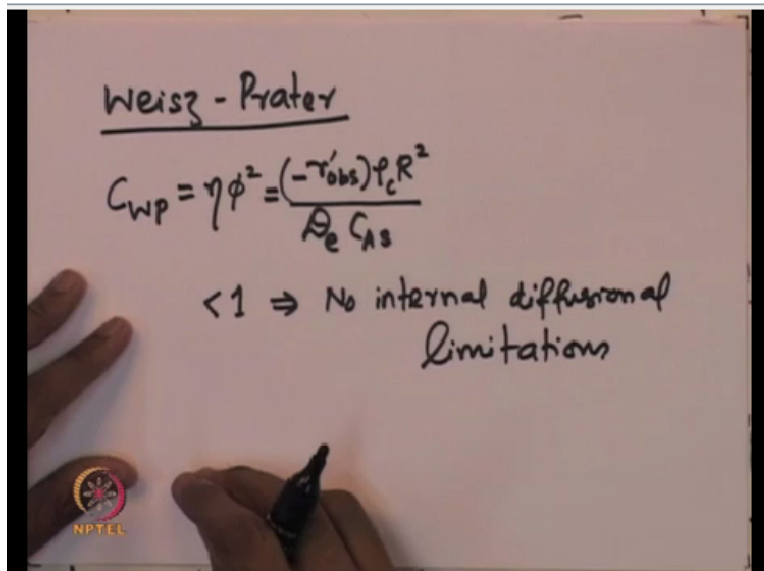 Weisz - Prater
C_WP = ηφ² = (-r'obs) ρ_c R² / D_e C_As
<1 ⇒ No internal diffusional
limitations
NPTEL